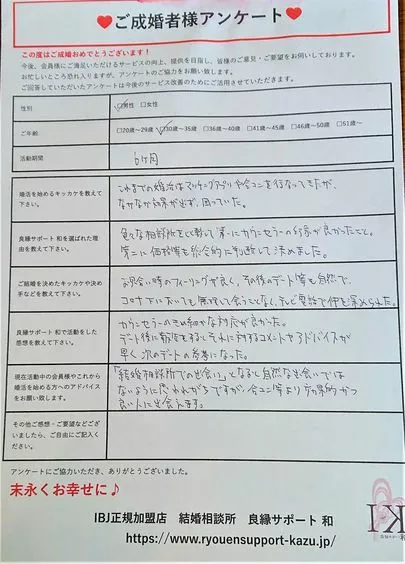 ♥ご成婚者様アンケート♥
この度はご成婚おめでとうございます！
今後、会員様にご満足いただけるサービスの向上、提供を目指し、皆様のご意見・ご要望をお伺いしております。
お忙しいところ恐れ入りますが、アンケートのご協力をお願い致します。
ご回答していただいたアンケートは今後のサービス改善のためにご活用させていただきます。
性別
☑男性 □女性
ご年齢
□20歳～29歳 ☑30歳～35歳 □36歳～40歳 □41歳～45歳 □46歳～50歳 □51歳～
活動期間
6ヶ月
婚活を始めるキッカケを教えて
下さい。
これまでの婚活はマッチングアプリや合コンを行なってきたが、
なかなか効果が出ず、困っていた。
良縁サポート 和を選ばれた理
由を教えて下さい。
色々な相談所を比較して第一にカウンセラーの印象が良かったこと。
第二に価格等を総合的に判断して決めました。
ご結婚を決めたキッカケや決め
手などを教えて下さい。
お見合い時のフィーリングが良く、その後のデート等も自然で、
コロナ下においても無理して会うことなく、テレビ電話で仲を深められた。
良縁サポート 和で活動をした
感想を教えて下さい。
カウンセラーのきめ細かな対応が良かった。
デート後に報告をするとそれに対するコメントやアドバイスが
早く次のデートの参考になった。
現在活動中の会員様やこれから
婚活を始める方へのアドバイス
をお願い致します。
「結婚相談所での出会い」となると自然な出会いでは
ないように思われがちですが、合コン等より効果的かつ
良い人に出会えます。
その他ご感想・ご要望などござ
いましたら、ご自由にご記入く
ださい。
アンケートにご協力いただき、ありがとうございました。
末永くお幸せに♪
IBJ正規加盟店 結婚相談所 良縁サポート 和
https://www.ryouensupport-kazu.jp/